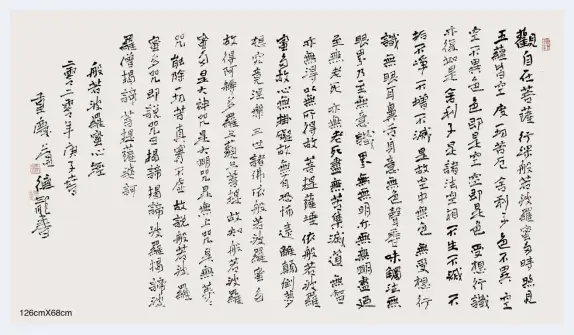 觀自在菩薩行深般若波羅蜜多時照見
五蘊皆空度一切苦厄舍利子色不異空
空不異色色即是空空即是色受想行識
亦復如是舍利子是諸法空相不生不滅不
垢不淨不增不減是故空中無色無受想行
識無眼耳鼻舌身意無色聲香味觸法無
眼界乃至無意識界無無明亦無無明盡乃
至無老死亦無老死盡無苦集滅道無智
亦無得以無所得故菩提薩埵依般若波羅
蜜多故心無掛礙故無有恐怖遠離顛倒夢
想究竟涅槃三世諸佛依般若波羅蜜多
故得阿耨多羅三藐三菩提故知般若波羅
蜜多是大神咒是大明咒是無上咒是無等等
咒能除一切苦真實不虛故說般若波羅
蜜多咒即說咒曰揭諦揭諦波羅揭諦波
羅僧揭諦菩提薩婆訶
般若波羅蜜心經
二零二零年庚子春
重慶
126cmX68cm